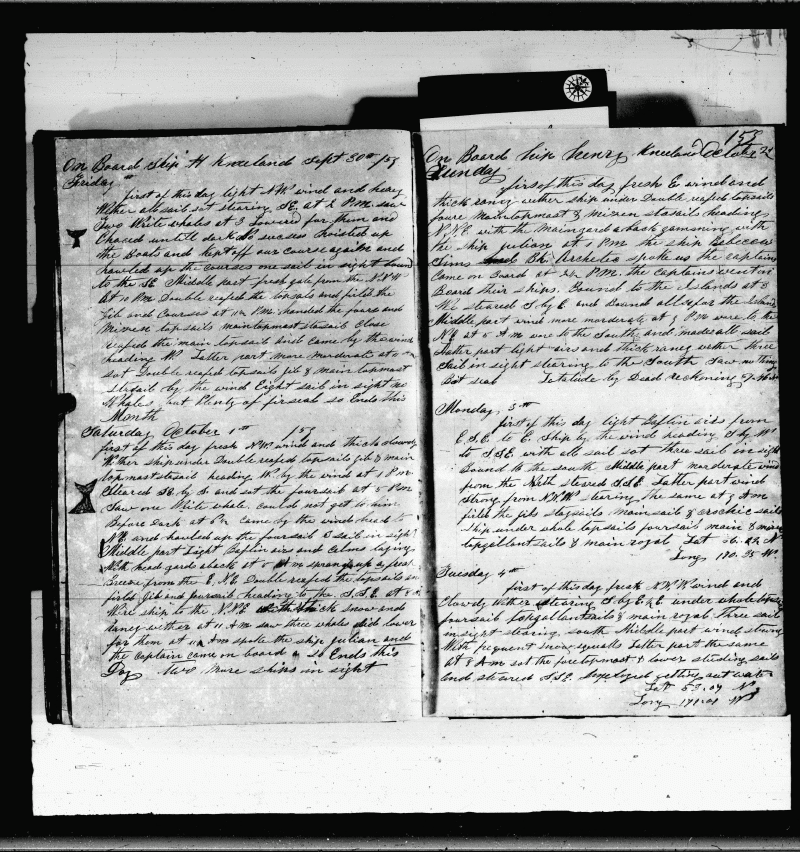 On Board Ship H Kneeland Sept 30th /53
Friday
first of this day light wind and heavy
Wether all sail sot stearing SE at 2 P.M. saw
Two White whales at 3 Lowered for them and
Chased untill dark No sucsess hoisted up
the Boats and kept off our course again and
hawled up the courses one sail in sight bound
to the SE Middle part fresh gale from the N.N.W
At 10 P.M. Double reafed the topsails and firled the
Jib and Courses at 12 P.M. handed the foure and
Mizen topsails maintopmost staysail close
reafed the main topsail and came by the wind
heading W Latter part more morderate at
sot Double reafed topsails jib & main topmost
staysail by the wind Eight sail in sight no
Whales, but Plenty of firseal so Ends this
Month
Saturday October 1th /53
first of this day fresh N.W. wind and thick cloudy
Wither ship under Double reafed topsails jib & main
topmast staysail heading W. by the wind at 1 P.M.
Steared by S and sot the foursail at 5 P.M
Saw one White whale, could not get to him
Before Dark at came by the wind head to
N.E and hawled up the foursail 3 sail in sight
Middle part Light Baflin airs and Calms laying
With head yards aback at 5 A.m sprang up a fresh
Breeze from the E.N.E Double reafed the topsails and
firled Jib and foursail heading to the S.S.E at 8
Wire ship to the N.N.E thick snow and
raney wither at 11 A.M saw three whales did lower
for them at 11 Am spoke the ship Julian and
the Captain came on board So Ends this
Day two more ships in sight
153
On Board Ship Henry Kneeland October 2
Sunday
first of this day fresh E wind and
thick raney wither ship under Double reafed topsails
foure maintopmast & mizen staysails heading
N.N.E. with the Mainyard aback gamming with
the ship Julian at 1 P.M. the ship Rebecow
Sims and Bk. Archetic spoke us the captains
came on Board at 2½ P.M. the captains went on
Board their ships. Bound to the Islands at 3
We steared S. by E and Bound all for the Islands
Middle part wind more morderate at 3 P.M wore to the
NE at 5 A M wore to the South and made all sail
Latter part light airs and thick raney wither three
Sail in sight stearing to the South Saw no thing
But seal Latitude by Dead reckoning
Monday, 3th
first of this day light Baflin airs from
E.S.E. to E. Ship by the wind heading S. by W.
to S.S.E with all sail sot three sail in sight
Bound to the south Middle part morderate wind
from the Nth steared S.S.E. Latter part wind
strong from N.N.W stearing the same at 3 A.M
firled the jib staysails main sail &
ship under whole topsails foursail main &
topgallantsails & main royal Lat 56.24 N
Long 170.35 W.
Tuesday 4th
first of this day fresh N.W. wind and
Cloudy wither stearing S. by E ½ E. under whole topsails
foursail topgallantsails & main royal Three sail
in sight stearing south Middle part wind strong
With frequent snow squalls Latter part the same
At 8 A M sot the foretopmast & lower studing sails
and steared S.S.E. Imployed getting out water
Lat 53.04 N
Long 171.01 W